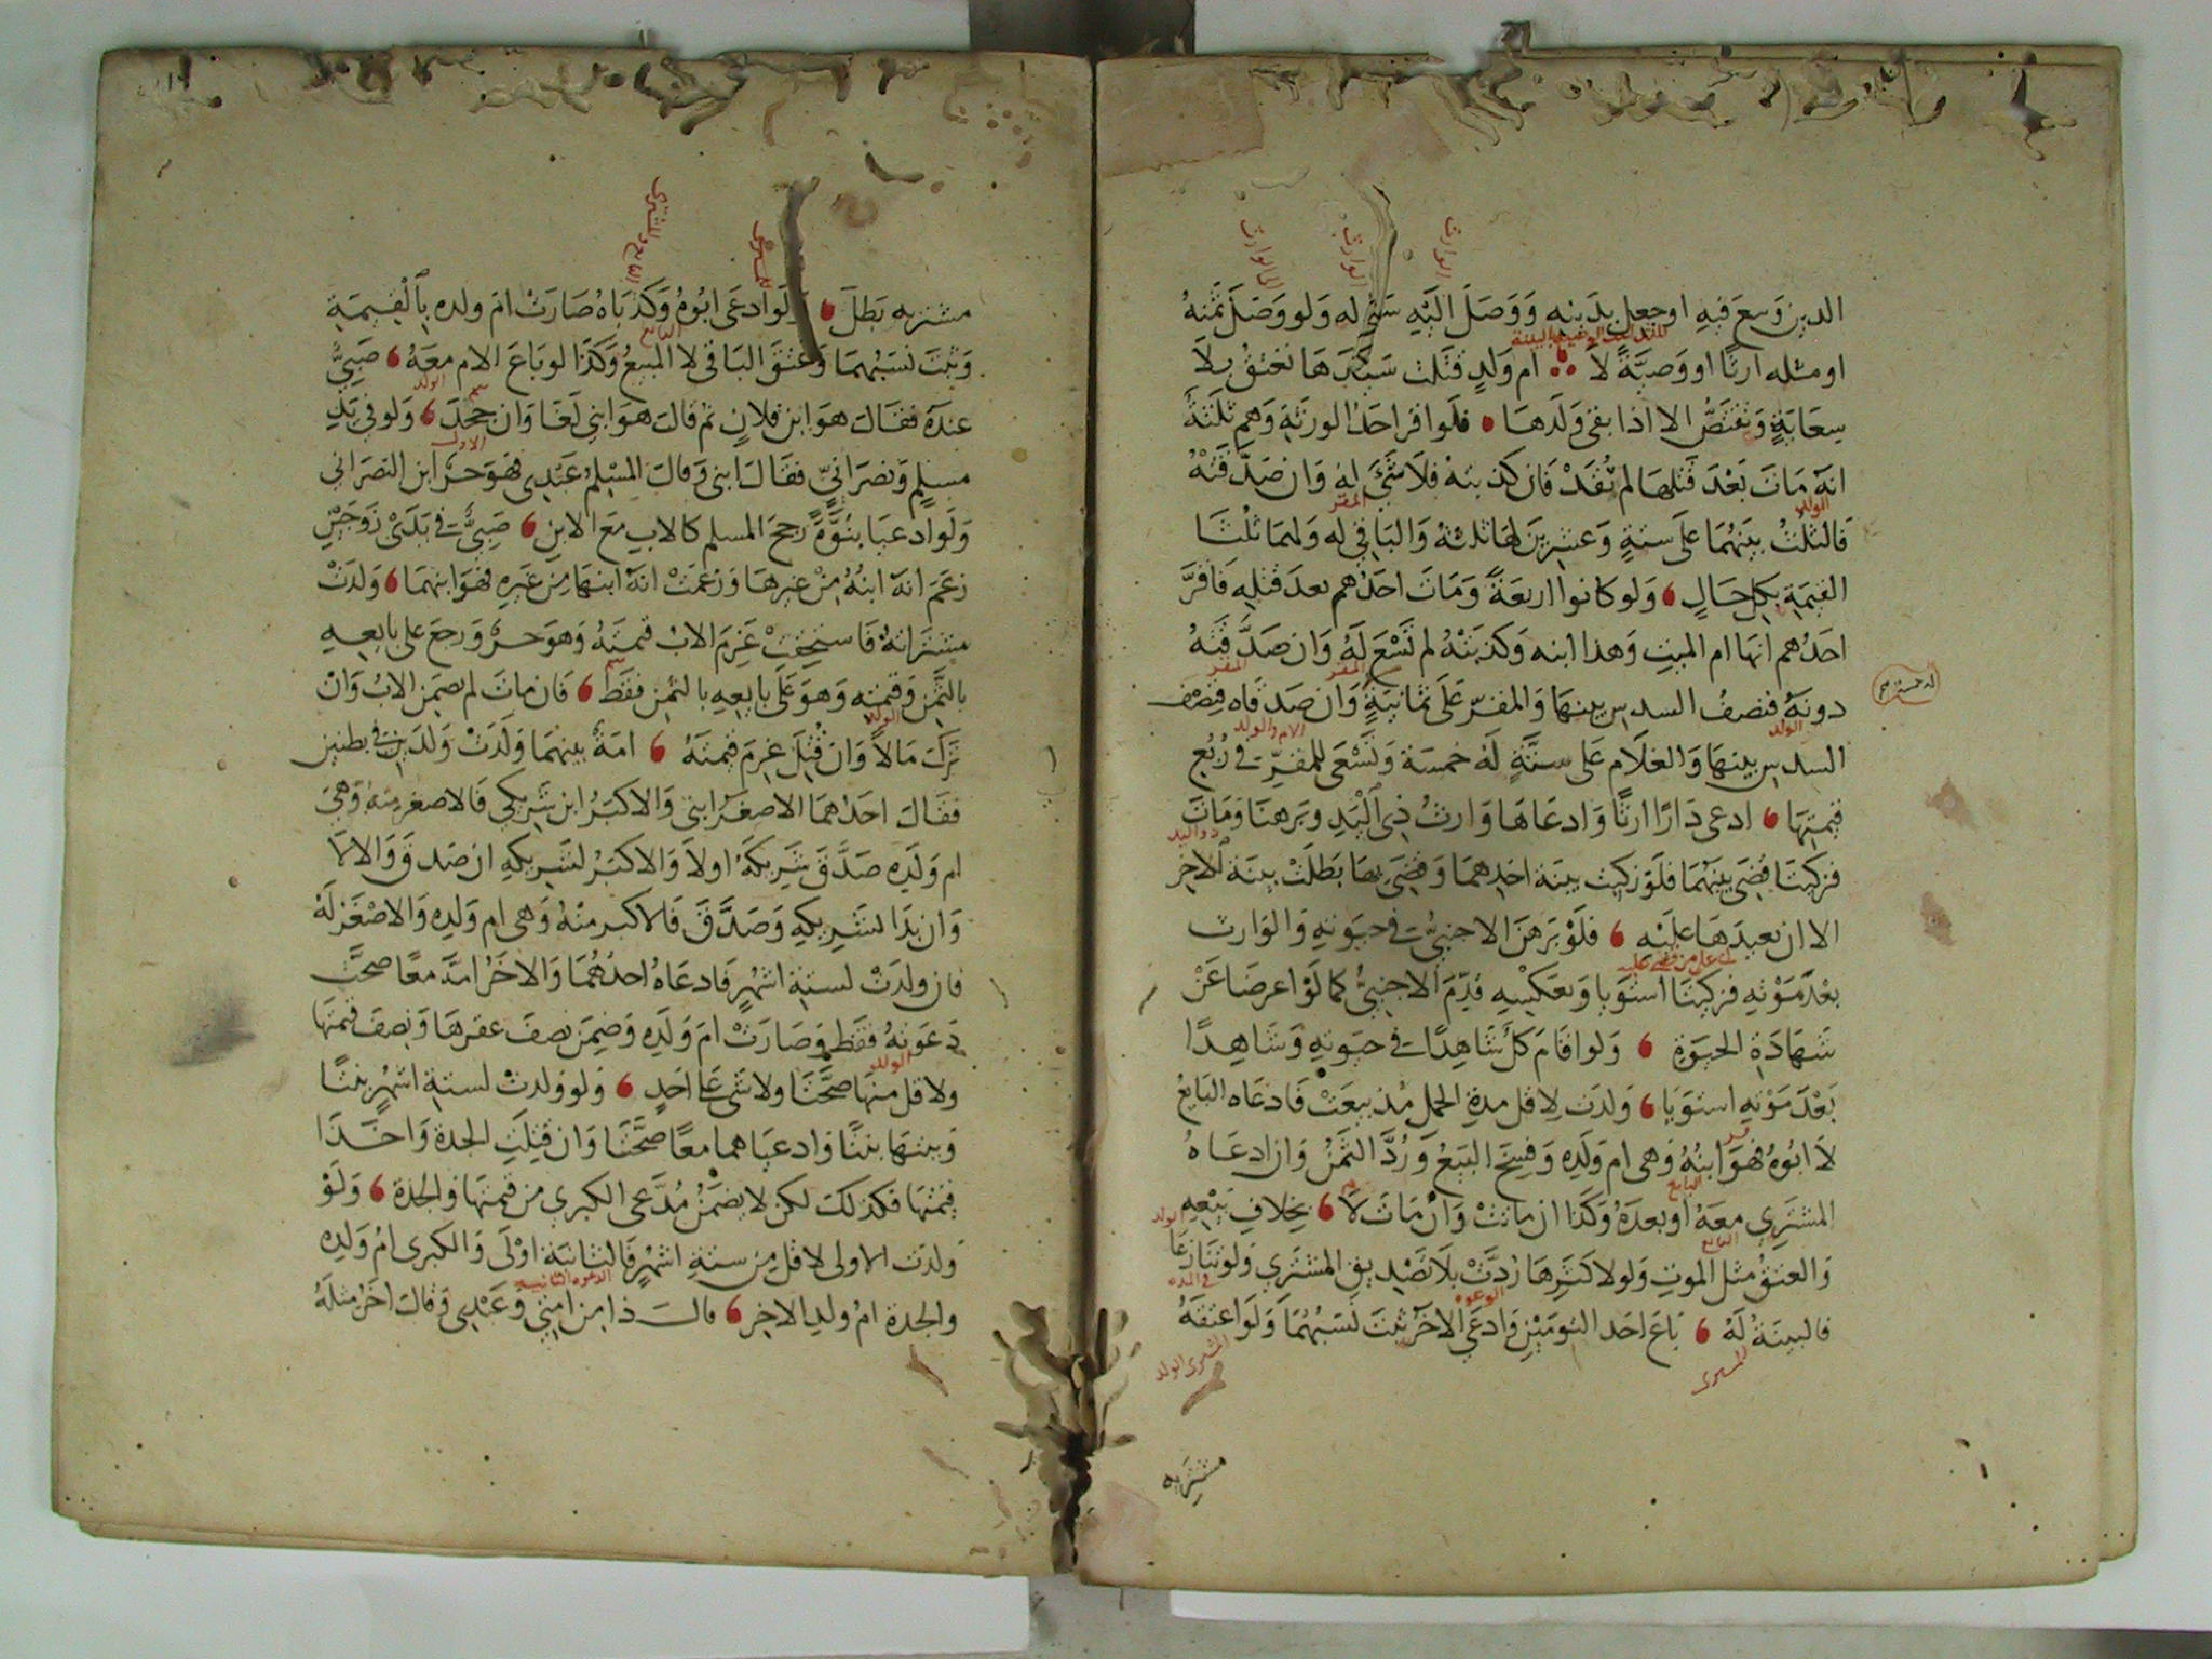 الدين وسع فيه اوجعل بدينه ووصل اليه سعى له ولو وصل ثمنه
او مثله ارثا او وصية لا ام ولد قتلت سيدها تعتق بلا
سعاية وتقتص الا اذا بقى ولدها فلو اقر احد الورثة وهم ثلثة
انه مات بعد قتلها لم تفد فان كذبته فلا شئ له وان صدقته
فالثلث بينهما على ستة وعشرين لها ثلثة والباقى له ولهما ثلثا
القيمة بكل حال ولو كانوا اربعة ومات احدهم بعد قتله فاقر
احدهم انها ام الميت وهذا ابنه وكذبته لم تسع له وان صدقته
دونه فنصف السدس بينها والمقر على ثمانية وان صدقاه فنصف
السدس بينها والغلام على ستة له خمسة وتسعى للمقر فى ربع
قيمتها ادعى دارا ارثا وادعاها وارث ذى اليد وبرهنا ومات
فزكيتا قضى بينهما فلو زكيت بينة احدهما وقضى بها بطلت بينة الاخر
الا ان يعيدها عليه فلو برهن الاجنبى فى حيوته والوارث
بعد موته فزكيتا استويا وبعكسه قدم الاجنبى كما لو اعرضا عن
شهادة الحيوة ولو اقام كل شاهدا فى حيوته وشاهدا
بعد موته استويا ولدت لاقل مدة الحمل مذ بيعت فادعاه البايع
لا ابوه فهو ابنه وهى ام ولده وفسخ البيع ورد الثمن وان ادعاه
المشترى معه او بعده وكذا ان ماتت وان مات لا بخلاف بيعه
والعتق مثل الموت ولو لاكثرها ردت بلا تصديق المشترى ولو تنازعا
فالبينة له باع احد التومين وادعى الاخر ثبت نسبهما ولو اعتقه
مشتريه
مشتريه بطل ولو ادعى ابوه وكذباه صارت ام ولده بالقيمة
وثبت نسبهما وعتق الباقى لا المبيع وكذا لو باع الام معه صبى
عنده فقال هو ابن فلان ثم قال هو ابنى لغا وان جحد ولو فى يد
مسلم ونصرانى فقال ابنى وقال المسلم عبدى فهو حر ابن النصرانى
ولو ادعيا بنوة رجح المسلم كالاب مع الابن صبى فى يدى زوجين
زعم انه ابنه من غيرها وزعمت انه ابنها من غيره فهو ابنهما ولدت
مشتراته فاستحقت غرم الاب قيمته وهو حر ورجع على بايعه
بالثمن وقيمته وهو على بايعه بالثمن فقط فان مات لم يضمن الاب وان
ترك مالا وان قتل غرم قيمته امة بينهما ولدت ولدين فى بطنين
فقال احدهما الاصغر ابنى والاكبر ابن شريكى فالاصغر منه وهى
ام ولده صدق شريكه اولا والاكبر لشريكه ان صدق والا لا
وان بدا لشريكه وصدق فالاكبر منه وهى ام ولده والاصغر له
فان ولدت لستة اشهر فادعاه احدهما والاخر امه معا صحت
دعوته فقط وصارت ام ولده وضمن نصف عقرها ونصف قيمتها
ولاقل منها صحتا ولا شى على احد ولو ولدت لستة اشهر بنتا
وبنتها بنتا وادعياهما معا صحتا وان قتلت الجدة واخذا
قيمتها فكذلك لكن لا يضمن مدعى الكبرى من قيمتها والجدة ولو
ولدت الاولى لاقل من ستة اشهر فالثانية اولى والكبرى ام ولده
والجدة ام ولد الاخر قال ذا من امتى وعبدى وقال اخر مثله